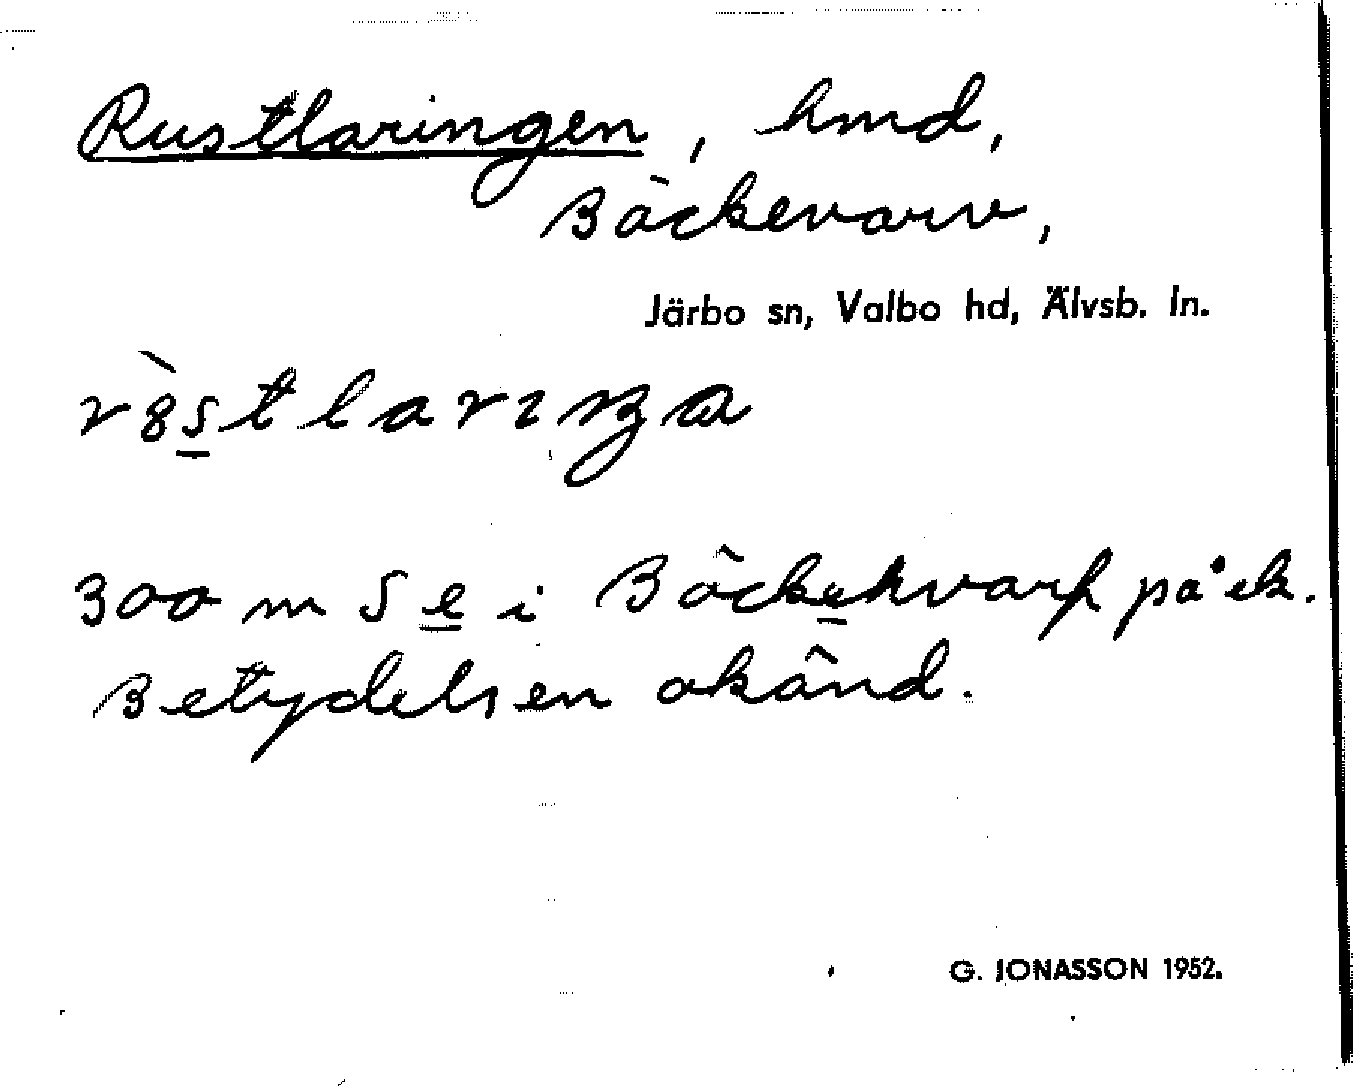 Rustlaringen, hmd,
Bäckevarv,
Järbo sn, Valbo hd, Älvsb. ln.
300 m S e i Bäckekvarf på ek.
Betydelsen okänd.
G. JONASSON 1952.